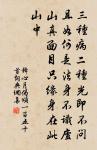 三種病二種光即不問
且如何是法身不識廬
山真面目只緣身在此
山中
釋心月偈頌一百五十
首